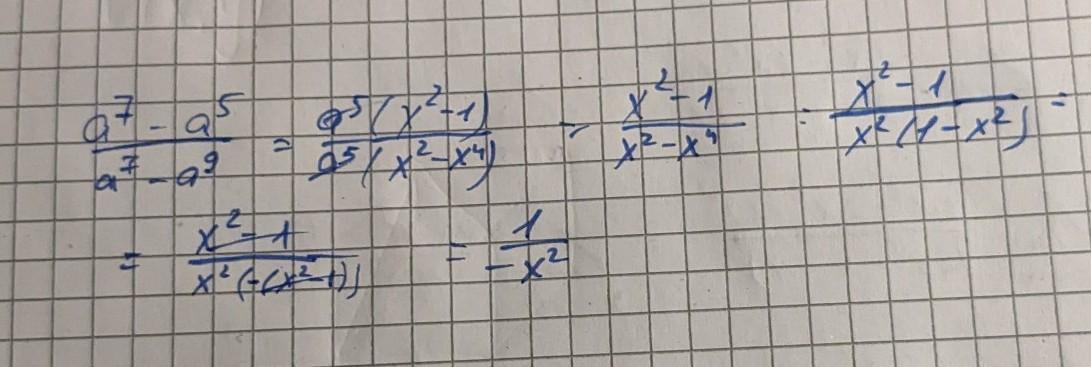 (a^7 - a^5)/(a^7 - a^9) = (a^5(x^2-1))/(a^5(x^2-x^4)) = (x^2-1)/(x^2-x^4) = (x^2-1)/(x^2(1-x^2)) =
= (x^2-1)/(x^2(-(x^2-1))) = 1/(-x^2)